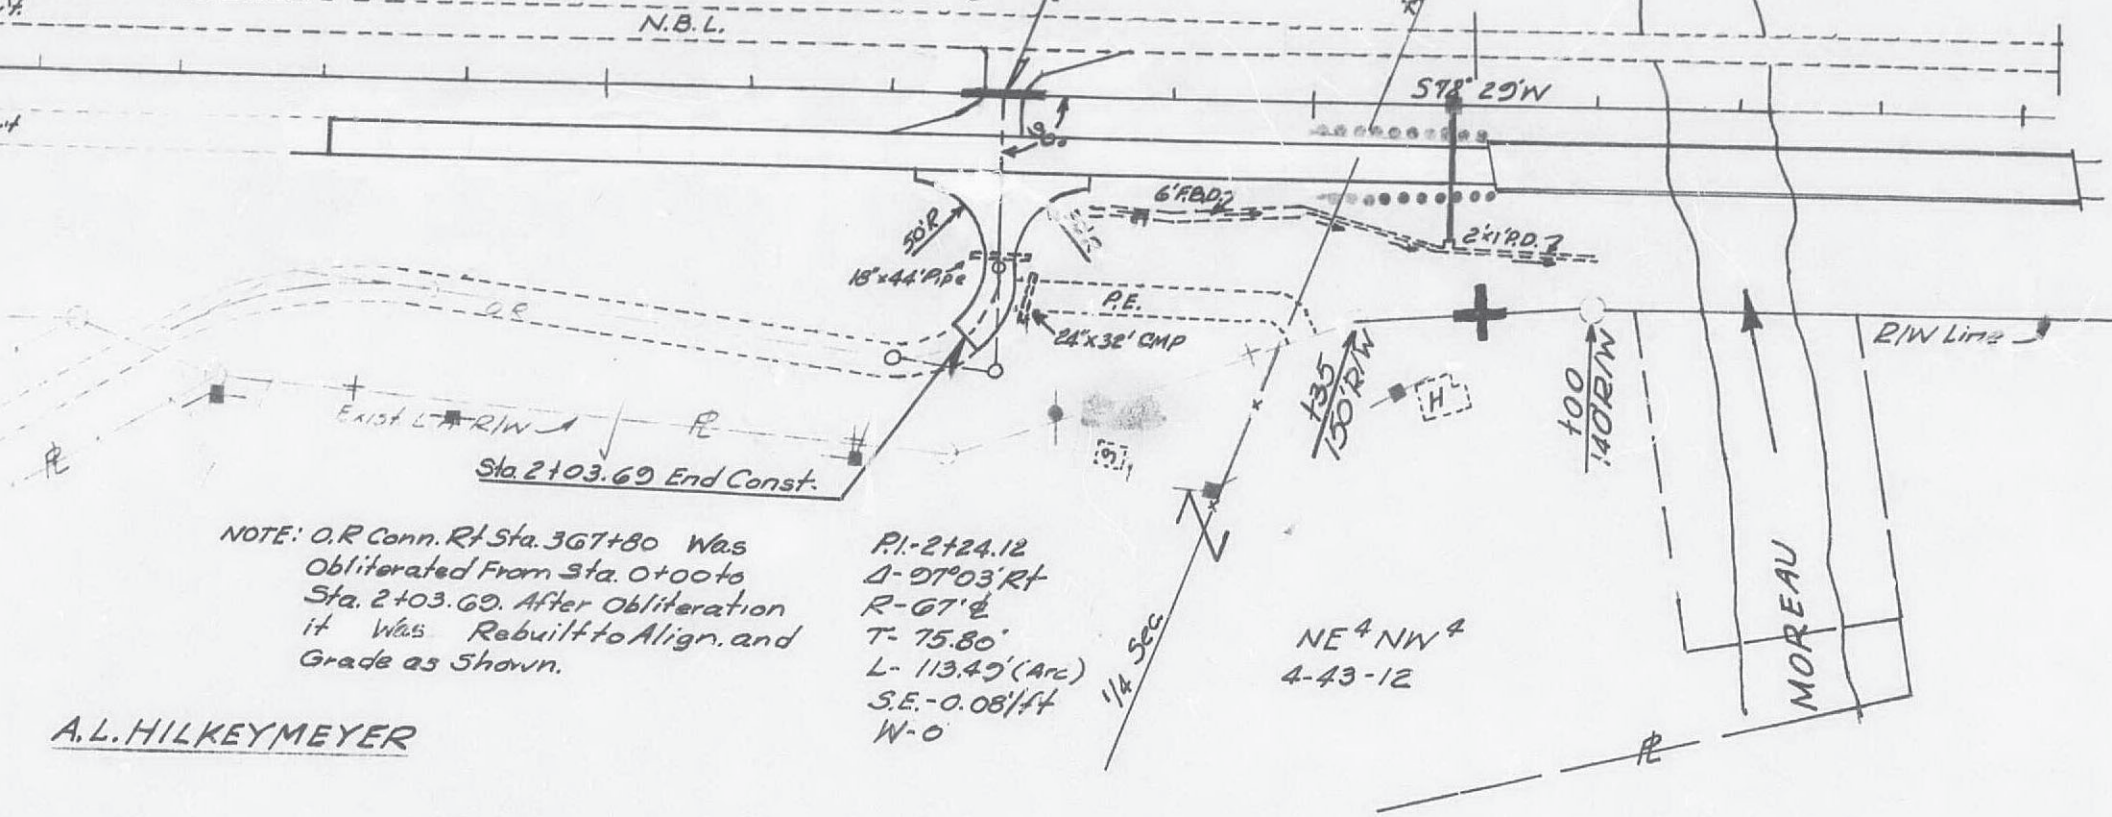 N.B.L.
S78° 29'W
90°
6'F.B.D.
50'R
2'x1'P.D.
18"x44'Pipe
P.E.
O.R.
24"x32' CMP
R/W Line
+35
150'R/W
+00
140'R/W
H
Exist L A R/W
PL
PL
Sta. 2+03.69 End Const.
NOTE: O.R Conn. Rt Sta. 367+80 Was
Obliterated From Sta. 0+00 to
Sta. 2+03.69. After Obliteration
it Was Rebuilt to Align. and
Grade as Shown.
P.I.-2+24.12
Δ-97°03'Rt
R-67'℄
T- 75.80'
L- 113.49'(Arc)
S.E.-0.08'/ft
W-0'
1/4 Sec.
NE⁴ NW⁴
4-43-12
MOREAU
PL
A.L.HILKEYMEYER